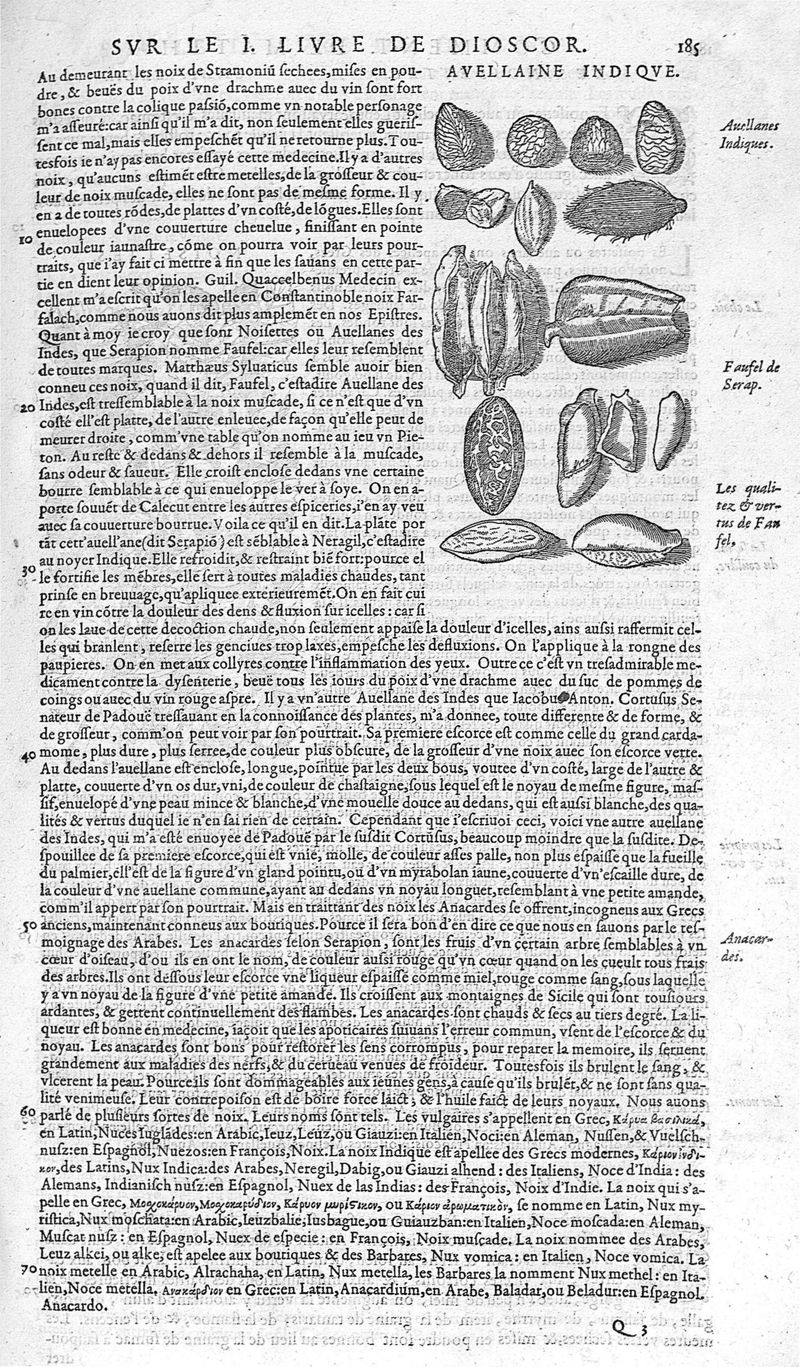 SVR LE I. LIVRE DE DIOSCOR. 185
Au demeurant les noix de Stramoniũ sechees, mises en pou-
dre, & beuës du poix d'vne drachme auec du vin sont fort
bones contre la colique passiõ, comme vn notable personage
m'a asseuré: car ainsi qu'il m'a dit, non seulement elles gueris-
sent ce mal, mais elles empeschẽt qu'il ne retourne plus. Tou-
tesfois ie n'ay pas encores essayé cette medecine. Il y a d'autres
noix, qu'aucuns estimẽt estre metelles, de la grosseur & cou-
leur de noix muscade, elles ne sont pas de mesme forme. Il y
en a de toutes rõdes, de plattes d'vn costé, de lõgues. Elles sont
enuelopees d'vne couuerture cheuelue, finissant en pointe
10 de couleur iaunastre, cõme on pourra voir par leurs pour-
traits, que i'ay fait ci mettre à fin que les sauans en cette par-
tie en dient leur opinion. Guil. Quacelbenus Medecin ex-
cellent m'a escrit qu'on les apelle en Constantinoble noix Far-
falach, comme nous auons dit plus amplemẽt en nos Epistres.
Quant à moy ie croy que sont Noisettes ou Auellanes des
Indes, que Serapion nomme Faufel: car elles leur resemblent
de toutes marques. Matthæus Syluaticus semble auoir bien
conneu ces noix, quand il dit, Faufel, c'estadire Auellane des
20 Indes, est tressemblable à la noix muscade, si ce n'est que d'vn
costé ell'est platte, de l'autre enleuee, de façon qu'elle peut de
meurer droite, comm'vne table qu'on nomme au ieu vn Pie-
ton. Au reste & dedans & dehors il resemble à la muscade,
sans odeur & saueur. Elle croist enclose dedans vne certaine
bourre semblable à ce qui enueloppe le ver à soye. On en a-
porte souuẽt de Calecut entre les autres espiceries, i'en ay veu
auec sa couuerture bourrue. Voila ce qu'il en dit. La plãte por
tãt cett'auell'ane (dit Serapiõ) est sẽblable à Neragil, c'estadire
au noyer Indique. Elle refroidit, & restraint biẽ fort: pource el
30 le fortifie les mẽbres, elle sert à toutes maladies chaudes, tant
prinse en breuuage, qu'apliquee exterieuremẽt. On en fait cui
re en vin cõtre la douleur des dens & fluxion sur icelles: car si
on les laue de cette decoction chaude, non seulement appaise la douleur d'icelles, ains aussi raffermit cel-
les qui branlent, reserre les genciues trop laxes, empesche les defluxions. On l'applique à la rongne des
paupieres. On en met aux collyres contre l'inflammation des yeux. Outre ce c'est vn tresadmirable me-
dicament contre la dysenterie, beuë tous les iours du poix d'vne drachme auec du suc de pommes de
coings ou auec du vin rouge aspre. Il y a vn'autre Auellane des Indes que Iacobus Anton. Cortusus Se-
nateur de Padouë tressauant en la connoissance des plantes, m'a donnee, toute differente & de forme, &
de grosseur, comm'on peut voir par son pourtrait. Sa premiere escorce est comme celle du grand carda-
40 mome, plus dure, plus serree, de couleur plus obscure, de la grosseur d'vne noix auec son escorce verte.
Au dedans l'auellane est enclose, longue, pointue par les deux bous, voutee d'vn costé, large de l'autre &
platte, couuerte d'vn os dur, vni, de couleur de chastaigne, sous lequel est le noyau de mesme figure, mas-
sif, enuelopé d'vne peau mince & blanche, d'vne mouelle douce au dedans, qui est aussi blanche, des qua-
lités & vertus duquel ie n'en sai rien de certain. Cependant que i'escriuoi ceci, voici vne autre auellane
des Indes, qui m'a esté enuoyee de Padouë par le susdit Cortusus, beaucoup moindre que la susdite. Des-
pouillee de sa premiere escorce, qui est vnie, molle, de couleur asses palle, non plus espaisse que la fueille
du palmier, ell'est de la figure d'vn gland pointu, ou d'vn myrabolan iaune, couuerte d'vn'escaille dure, de
la couleur d'vne auellane commune, ayant au dedans vn noyau longuet, resemblant à vne petite amande,
comm'il appert par son pourtrait. Mais en traittant des noix les Anacardes se offrent, incogneus aux Grecs
50 anciens, maintenant conneus aux boutiques. Pource il sera bon d'en dire ce que nous en sauons par le tes-
moignage des Arabes. Les anacardes selon Serapion, sont les fruis d'vn certain arbre semblables à vn
cœur d'oiseau, d'ou ils en ont le nom, de couleur aussi rouge qu'vn cœur quand on les cueult tous frais
des arbres. Ils ont dessous leur escorce vne liqueur espaisse comme miel, rouge comme sang, sous laquelle
y a vn noyau de la figure d'vne petite amande. Ils croissent aux montaignes de Sicile qui sont tousiours
ardantes, & gettent continuellement des flambes. Les anacardes sont chauds & secs au tiers degré. La li-
queur est bonne en medecine, iaçoit que les apoticaires suiuans l'erreur commun, vsent de l'escorce & du
noyau. Les anacardes sont bons pour restorer les sens corrompus, pour reparer la memoire, ils seruent
grandement aux maladies des nerfs, & du cerueau venues de froideur. Toutesfois ils brulent le sang, &
vlcerent la peau. Pource ils sont dommageables aux ieunes gens, à cause qu'ils brulẽt, & ne sont sans qua-
lité venimeuse. Leur contrepoison est de boire force laict, & l'huile faict de leurs noyaux. Nous auons
60 parlé de plusieurs sortes de noix. Leurs noms sont tels. Les vulgaires s'appellent en Grec, Κάρυα βασιλικά,
en Latin, Nuces Iuglãdes: en Arabic, Ieuz, Leuz, ou Giauzi: en Italien, Noci: en Aleman, Nussen, & Vuelsch-
nusz: en Espagnol, Nuezos: en François, Noix. La noix Indique est apellee des Grecs modernes, Κάριον ἰνδι-
κον, des Latins, Nux Indica: des Arabes, Neregil, Dabig, ou Giauzi alhend: des Italiens, Noce d'India: des
Alemans, Indianisch nusz: en Espagnol, Nuex de las Indias: des François, Noix d'Indie. La noix qui s'a-
pelle en Grec, Μοσχοκάρυον, Μοσχοκαρύδιον, Κάρυον μυρίστικον, ou Κάριον ἀρωματικὸν, se nomme en Latin, Nux my-
ristica, Nux moschata: en Arabic, Ieuzbalie, Iusbague, ou Guiauzban: en Italien, Noce moscada: en Aleman,
Muscat nusz: en Espagnol, Nuex de especie: en François, Noix muscade. La noix nommee des Arabes,
Leuz alkei, ou alke, est apelee aux boutiques & des Barbares, Nux vomica: en Italien, Noce vomica. La
70 noix metelle en Arabic, Alrachaha, en Latin, Nux metella, les Barbares la nomment Nux methel: en Ita-
lien, Noce metella. Ανακάρδιον en Grec: en Latin, Anacardium, en Arabe, Baladar, ou Beladur: en Espagnol.
Anacardo.
Q 3
AVELLAINE INDIQVE.
Auellanes
Indiques.
Faufel de
Serap.
Les quali-
tez & ver-
tus de Fau
fel,
Anacar-
des.